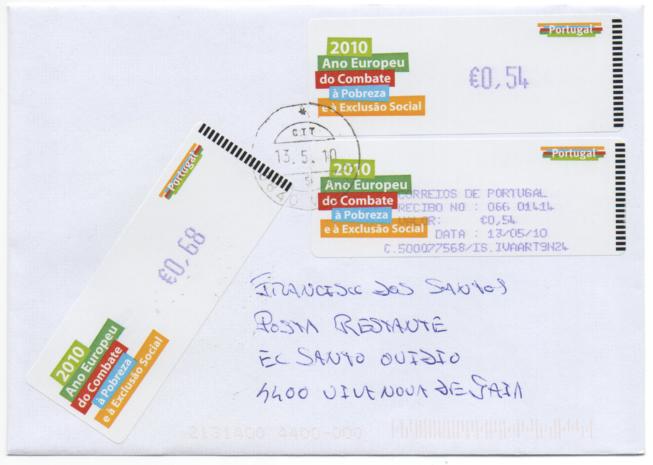 Portugal
2010
Ano Europeu
do Combate
à Pobreza
e à Exclusão Social
€0,54
CTT
13.5.10
Portugal
2010
Ano Europeu
do Combate
à Pobreza
e à Exclusão Social
CORREIOS DE PORTUGAL
RECIBO NO : 066 01414
VALOR: €0,54
DATA : 13/05/10
C.500077568/IS.IVAART9N24
Portugal
€0,68
2010
Ano Europeu
do Combate
à Pobreza
e à Exclusão Social
FRANCISCO DOS SANTOS
POSTA RESTANTE
EC SANTO OVIDIO
4400 VILA NOVA DE GAIA
2131400 4400-000